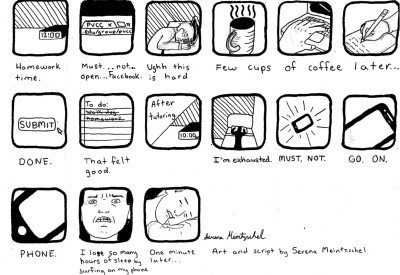 12:00
PVCC
edu/group/pvcc
Homework time.
Must...not... open...Facebook.
Ughh this is hard
Few cups of coffee later...
SUBMIT
To do:
homework
After tutoring
10:00
DONE.
That felt good.
I'm exhausted.
MUST. NOT.
GO. ON.
PHONE.
I lose so many hours of sleep by surfing on my phone
One minute later...
Serena Meintzschel
Art and script by Serena Meintzschel